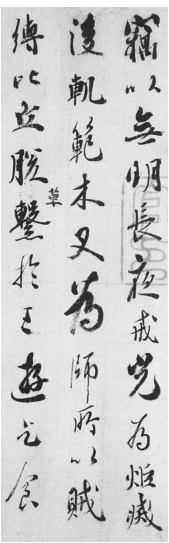 竊以無明長夜戒光為炬滅
後軌範木叉為師所以賊
縛比丘脫草繫於王遊乞食